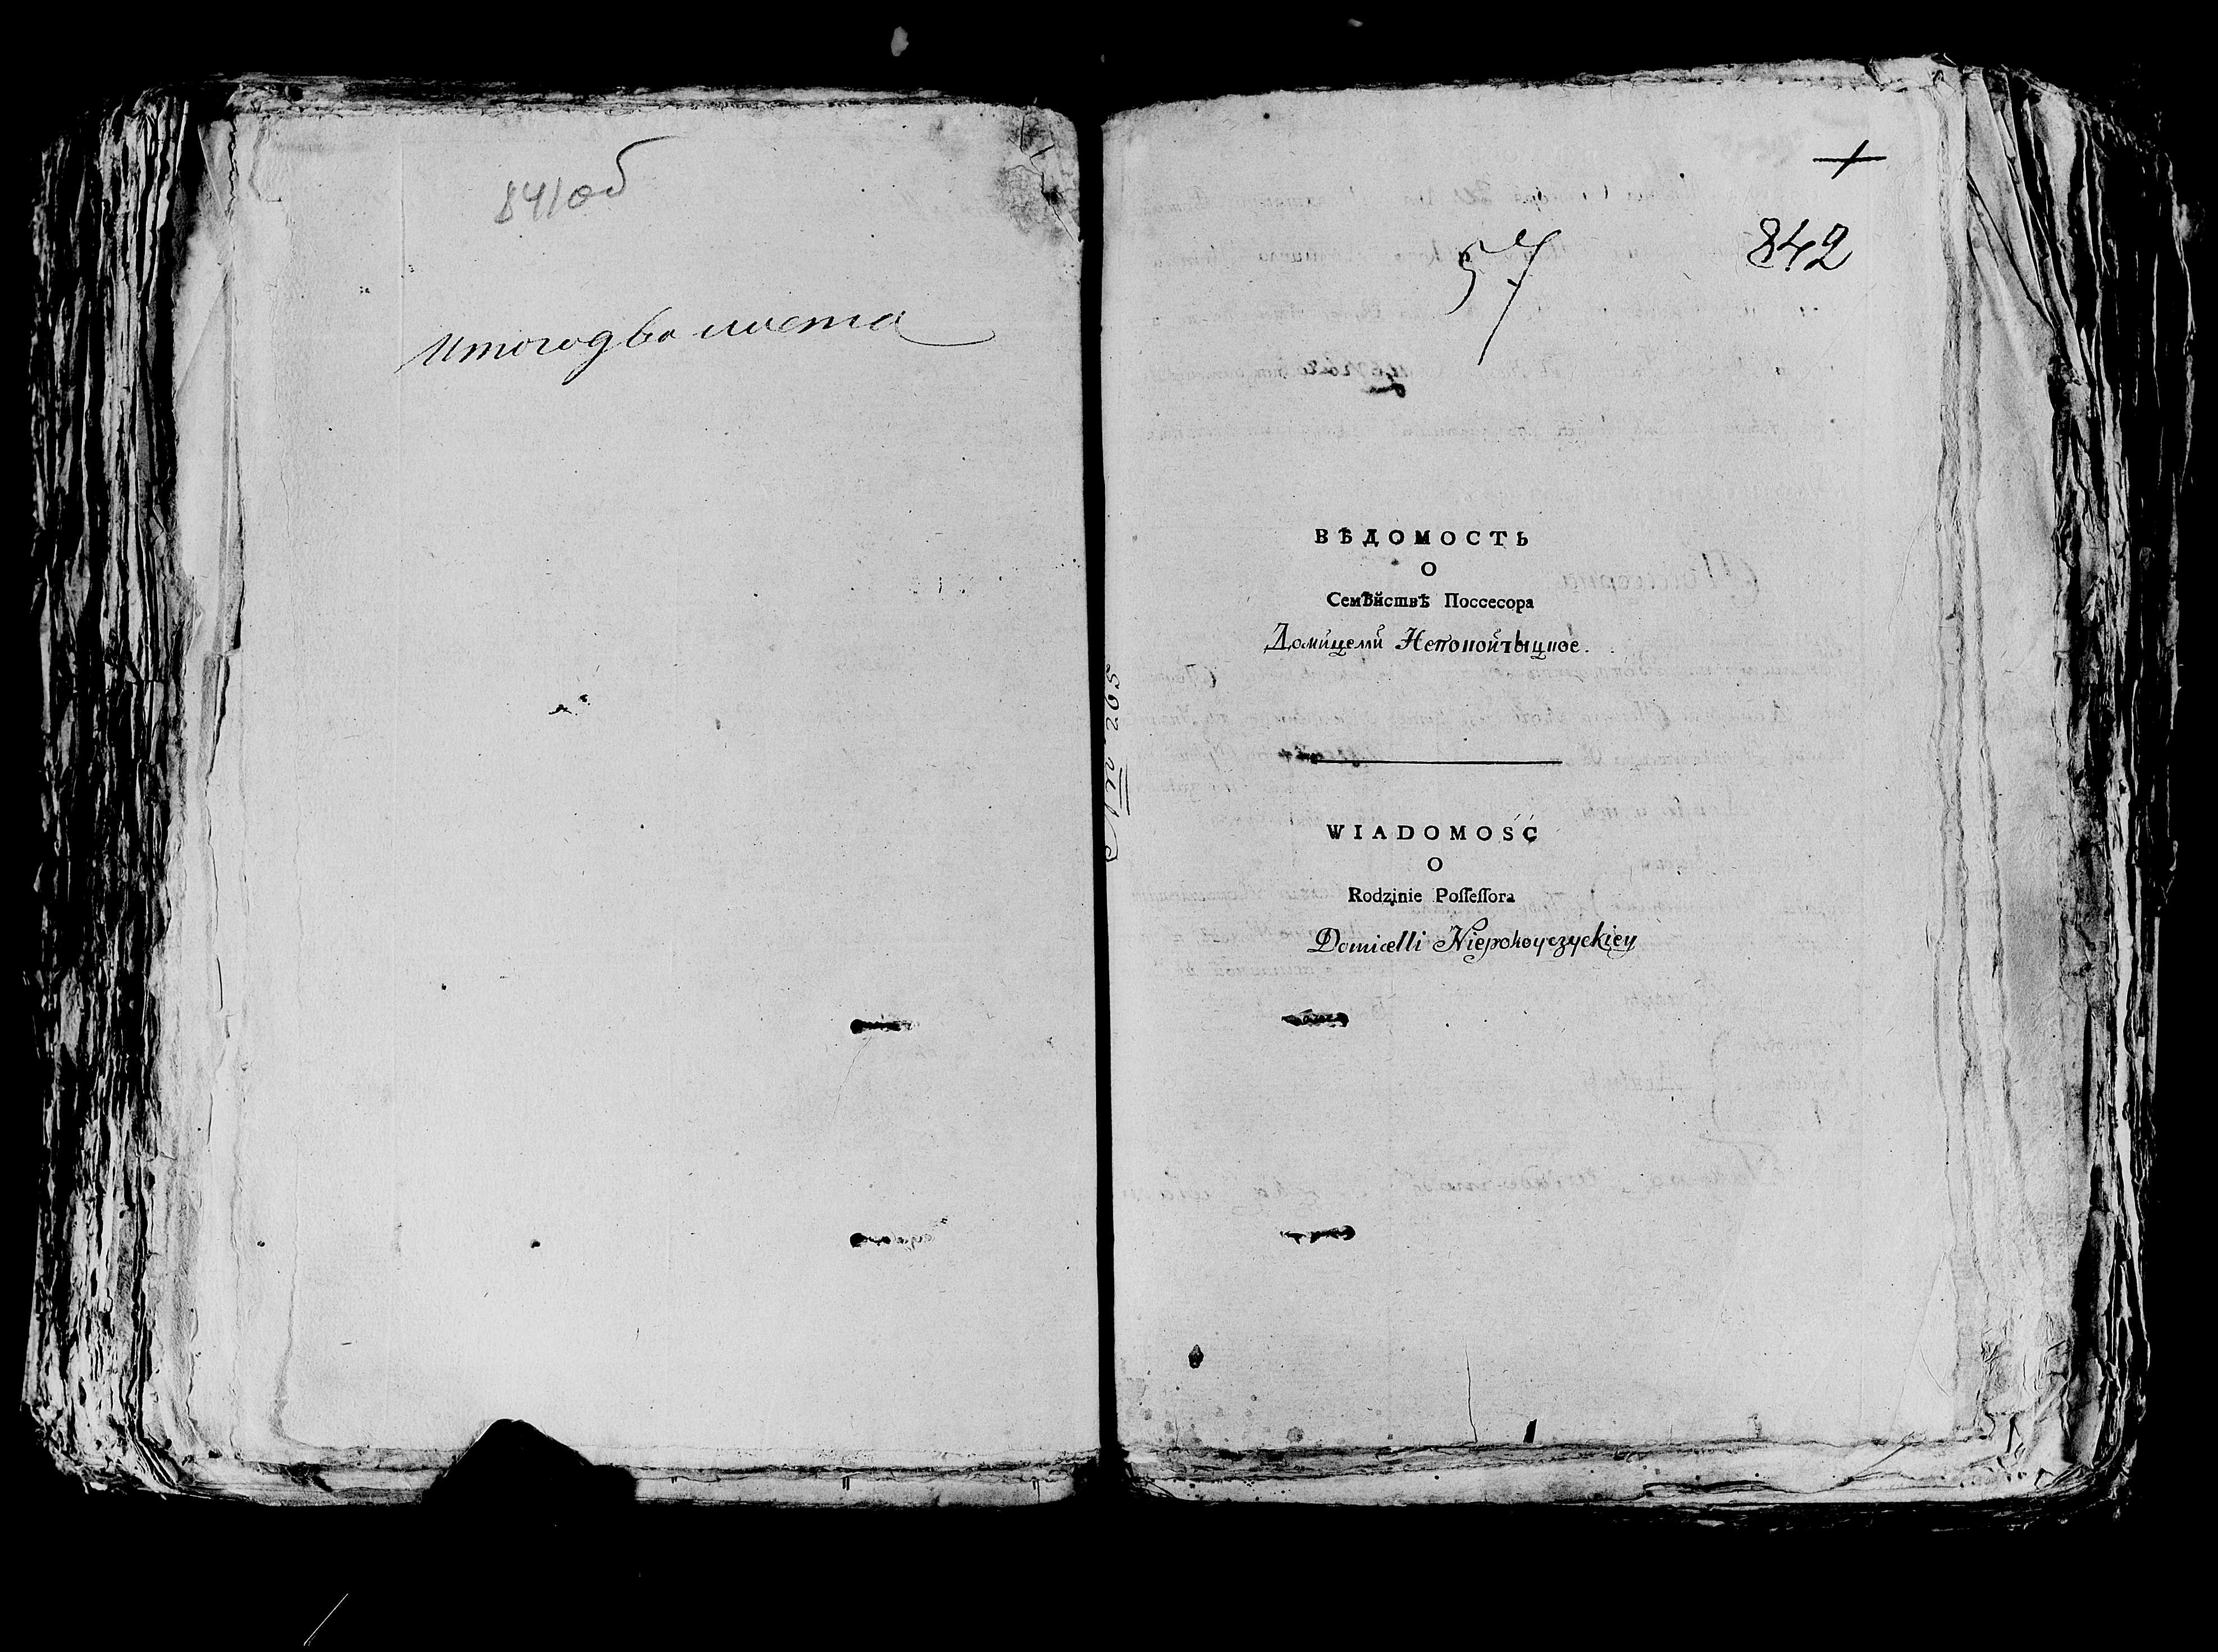 841об
Итого два листа
57
842
ВѢДОМОСТЬ
О
Семѣйствѣ Поссесора
Домицелли Непокойчыцкое.
No 265
WIADOMOŚĆ
O
Rodzinie Poſſeſſora
Domicelli Niepokoyczyckiey